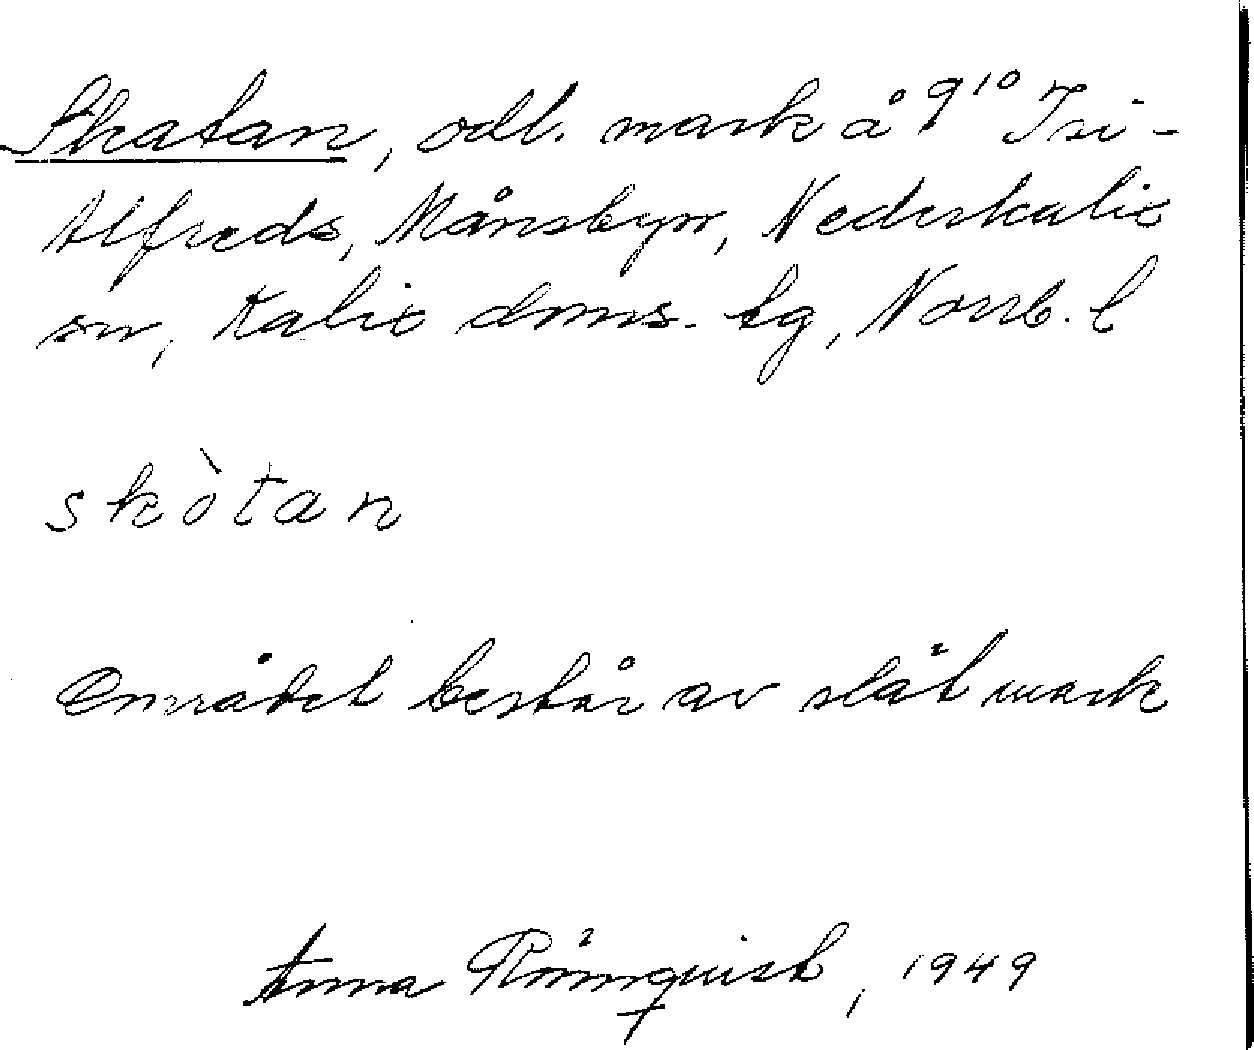 Skatan, odl. mark å 9¹⁰ Isi-
Alfreds, Månsbyn, Nederkalix
sn, Kalix doms. tg, Norrb. l
skòtan
Området består av slåtmark
Anna Rönnquist, 1949